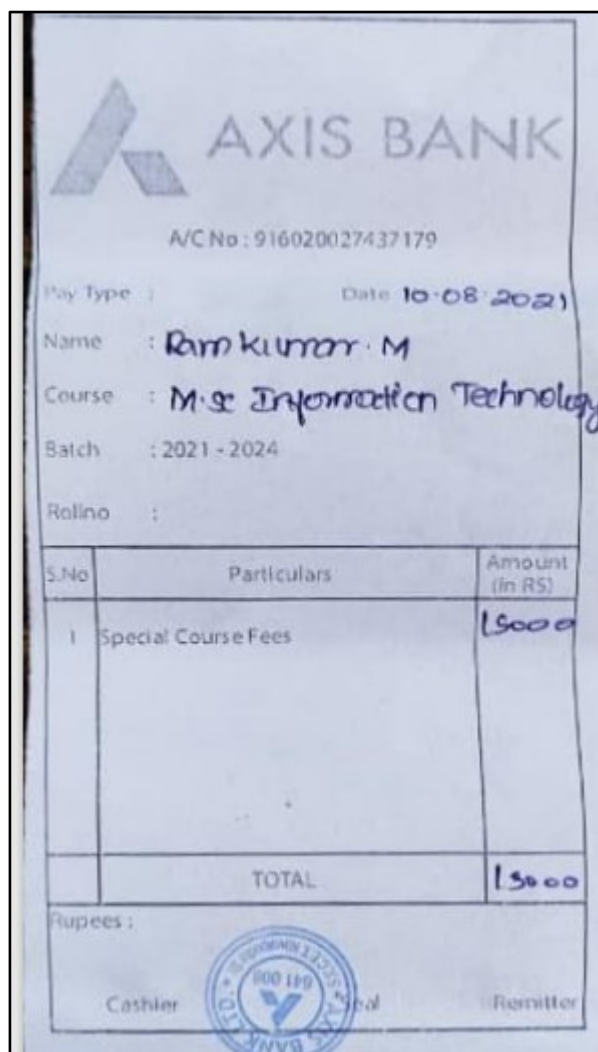 AXIS BANK
A/C No : 916020027437179
Pay Type : Date 10·08·2021
Name : Ramkumar. M
Course : M.sc Information Technology
Batch : 2021 - 2024
Rollno :
S.No Particulars Amount
(in RS)
1 Special Course Fees 15000
TOTAL 15000
Rupees :
641 008
Cashier Seal Remitter
AXIS BANK LTD.